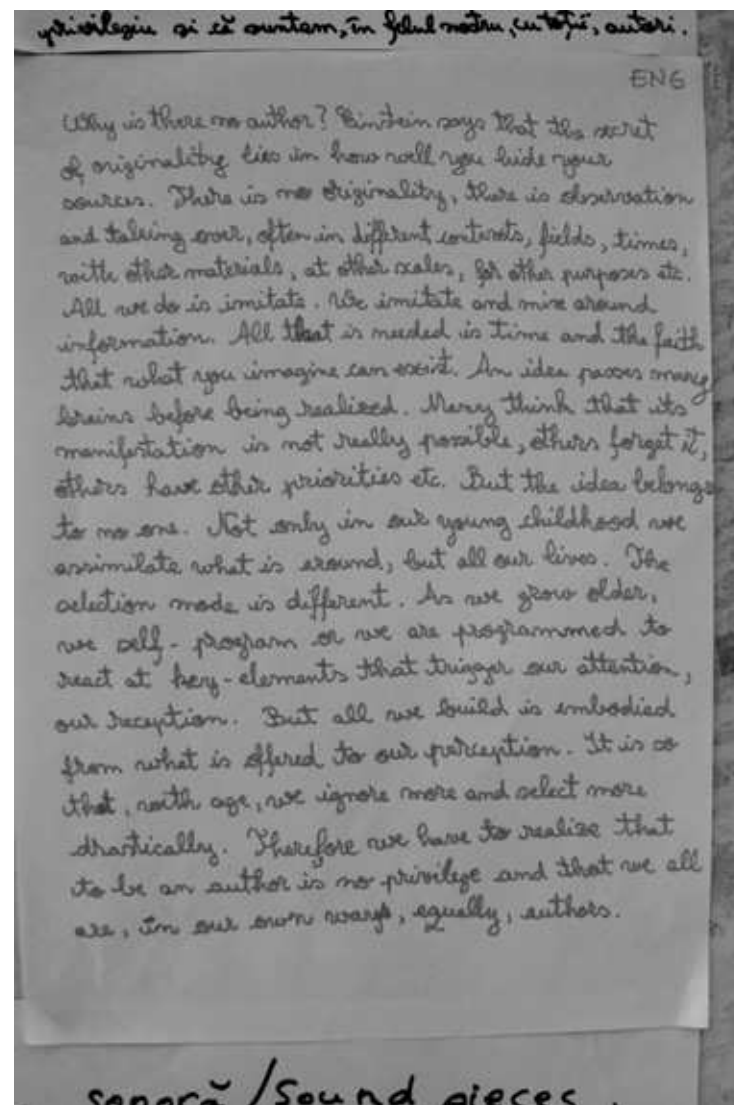 privilegiu și că suntem, în felul nostru, cu toții, autori.
ENG
Why is there no author? Einstein says that the secret
of originality lies in how well you hide your
sources. There is no originality, there is observation
and taking over, often in different contexts, fields, times,
with other materials, at other scales, for other purposes etc.
All we do is imitate. We imitate and mix around
information. All that is needed is time and the faith
that what you imagine can exist. An idea passes many
brains before being realized. Many think that its
manifestation is not really possible, others forget it,
others have other priorities etc. But the idea belongs
to no one. Not only in our young childhood we
assimilate what is around, but all our lives. The
selection mode is different. As we grow older,
we self-program or we are programmed to
react at key-elements that trigger our attention,
our reception. But all we build is embodied
from what is offered to our perception. It is so
that, with age, we ignore more and select more
drastically. Therefore we have to realize that
to be an author is no privilege and that we all
are, in our own ways, equally, authors.
sonoră / Sound pieces